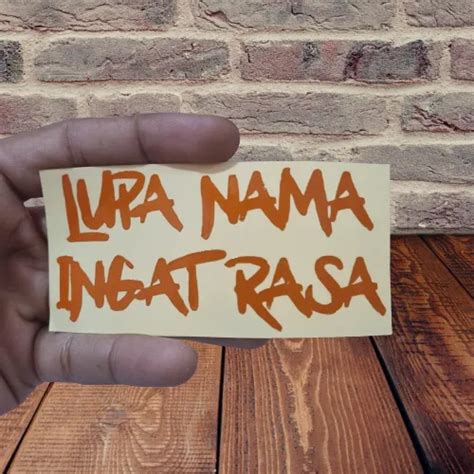 LUPA NAMA
INGAT RASA